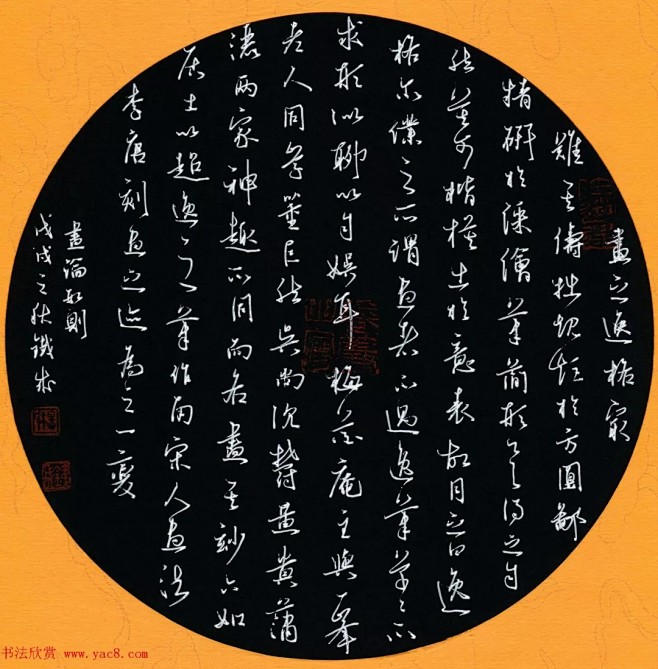 畫之逸格最
難其儔拙規矩於方圓鄙
精研於彩繪筆簡形具得之自
然莫可楷模出於意表故目之曰逸
格尔僕之所謂畫者不過逸筆草草不
求形似聊以自娛耳梅花庵主與一峯
老人同學董巨然吳尚沉鬱黃貴蕭
灑兩家神趣不同而各盡其妙六如
居士以超逸之筆作南宋人畫法
李唐刻畫之迹為之一變
畫論數則
戊戌之秋鐵
书法欣赏 www.yac8.com